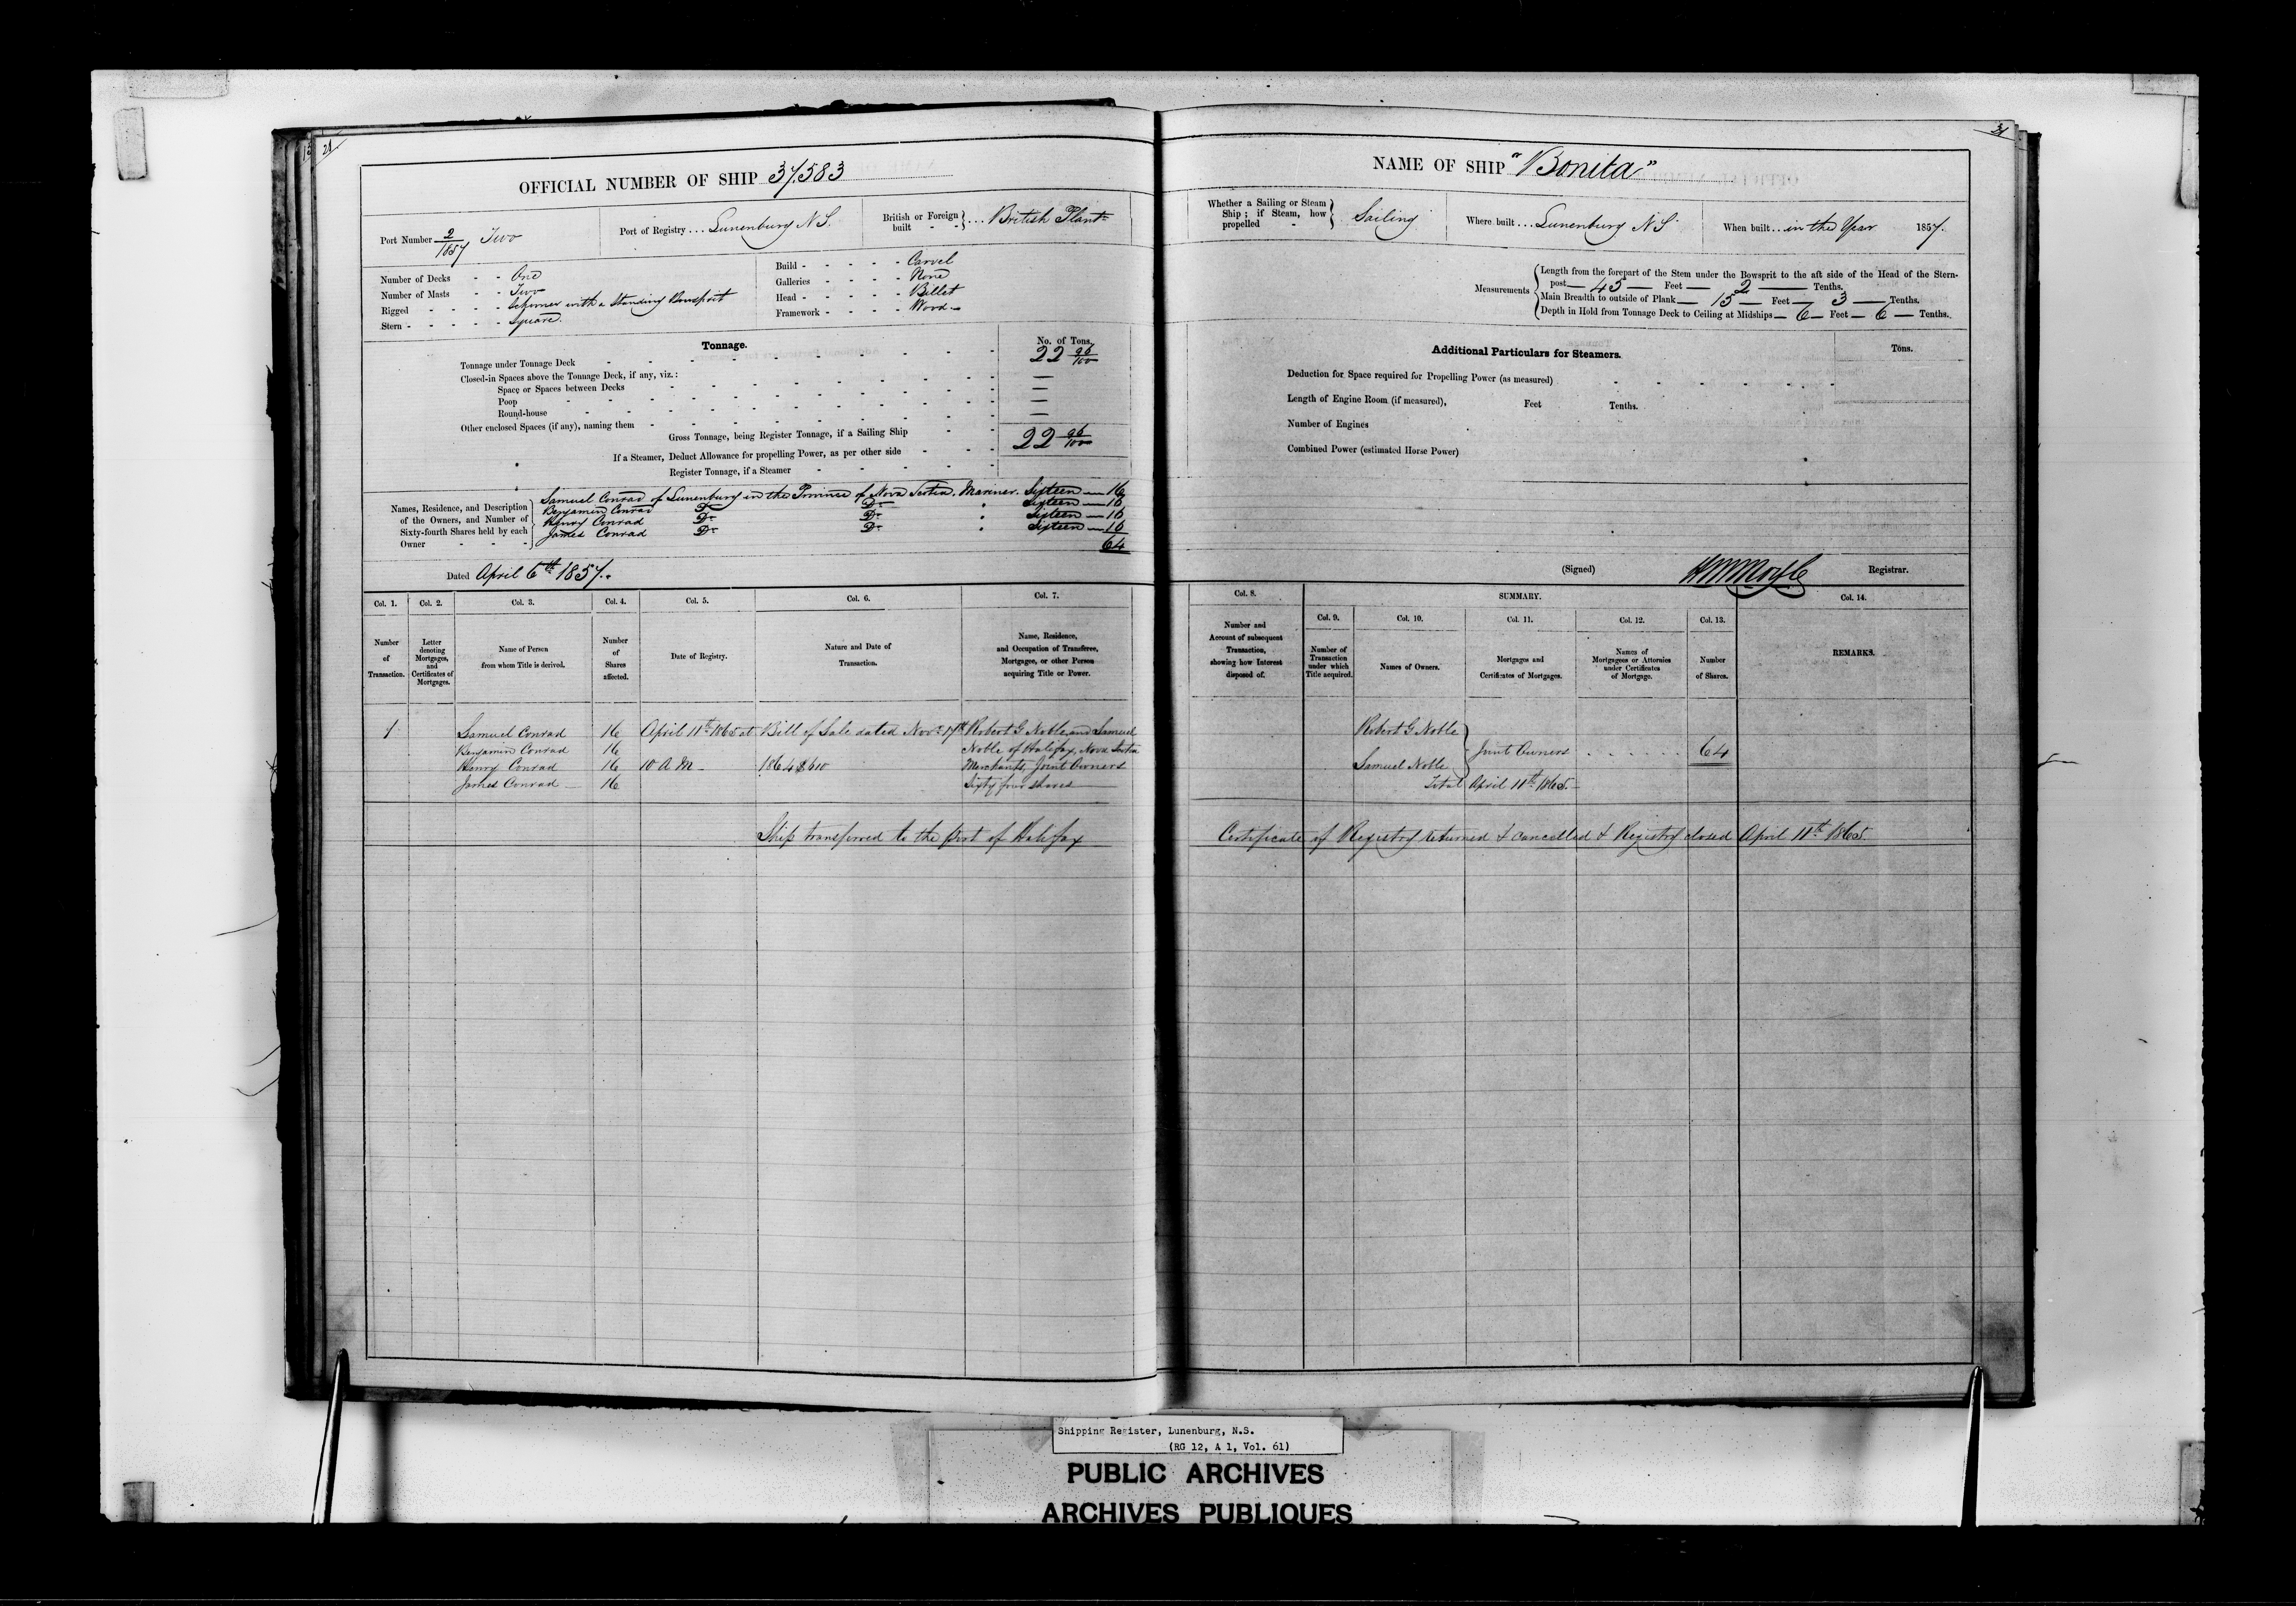 OFFICIAL NUMBER OF SHIP 37.583
Port Number 2/1857 Two
Port of Registry ... Lunenburg N.S.
British or Foreign built } ... British Plant-
Number of Decks - - One
Number of Masts - - Two
Rigged - - - - Schooner with a Standing Bowsprit
Stern - - - - - Square
Build - - - - - Carvel
Galleries - - - - None
Head - - - - - Billet
Framework - - - - Wood
Tonnage.
No. of Tons.
Tonnage under Tonnage Deck 22 96/100
Closed-in Spaces above the Tonnage Deck, if any, viz.: —
Space or Spaces between Decks —
Poop —
Round-house —
Other enclosed Spaces (if any), naming them
Gross Tonnage, being Register Tonnage, if a Sailing Ship 22 96/100
If a Steamer, Deduct Allowance for propelling Power, as per other side
Register Tonnage, if a Steamer
Names, Residence, and Description of the Owners, and Number of Sixty-fourth Shares held by each Owner
Samuel Conrad of Lunenburg in the Province of Nova Scotia. Mariner. Sixteen — 16
Benjamin Conrad Do Do " Sixteen — 16
Henry Conrad Do Do Sixteen — 16
James Conrad Do Do " Sixteen — 16
64
Dated April 6th 1857.
Col. 1. Col. 2. Col. 3. Col. 4. Col. 5. Col. 6. Col. 7.
Number of Transaction.
Letter denoting Mortgages, and Certificates of Mortgages.
Name of Person from whom Title is derived.
Number of Shares affected.
Date of Registry.
Nature and Date of Transaction.
Name, Residence, and Occupation of Transferee, Mortgagee, or other Person acquiring Title or Power.
1 Samuel Conrad 16 April 11th 1865 at Bill of Sale dated Novr 17th Robert G Noble and Samuel
Benjamin Conrad 16 Noble of Halifax, Nova Scotia
Henry Conrad 16 10 A M - 1864 Merchants, Joint Owners
James Conrad — 16 Sixty four shares
Ship transferred to the port of Halifax
NAME OF SHIP "Bonita"
Whether a Sailing or Steam Ship; if Steam, how propelled } Sailing
Where built ... Lunenburg N.S.
When built ... in the Year 1857.
Measurements
Length from the forepart of the Stem under the Bowsprit to the aft side of the Head of the Stern-
post— 45 — Feet — 2 — Tenths.
Main Breadth to outside of Plank— 15 — Feet — 3 — Tenths.
Depth in Hold from Tonnage Deck to Ceiling at Midships — 6 — Feet — 6 — Tenths.
Additional Particulars for Steamers.
Tons.
Deduction for Space required for Propelling Power (as measured)
Length of Engine Room (if measured), Feet Tenths.
Number of Engines
Combined Power (estimated Horse Power)
(Signed) Registrar.
Col. 8. SUMMARY. Col. 14.
Col. 9. Col. 10. Col. 11. Col. 12. Col. 13.
Number and Account of subsequent Transaction, showing how Interest disposed of.
Number of Transaction under which Title acquired.
Names of Owners.
Mortgages and Certificates of Mortgages.
Names of Mortgagees or Attornies under Certificates of Mortgage.
Number of Shares.
REMARKS.
Robert G Noble
Joint Owners 64
Samuel Noble
Total April 11th 1865.
Certificate of Registry returned & cancelled & Registry closed April 11th 1865.
Shipping Register, Lunenburg, N.S.
(RG 12, A 1, Vol. 61)
PUBLIC ARCHIVES
ARCHIVES PUBLIQUES